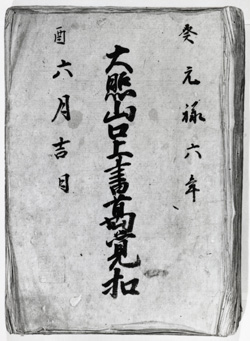 癸元禄六年
大熊山口上書萬覚扣
酉六月吉日